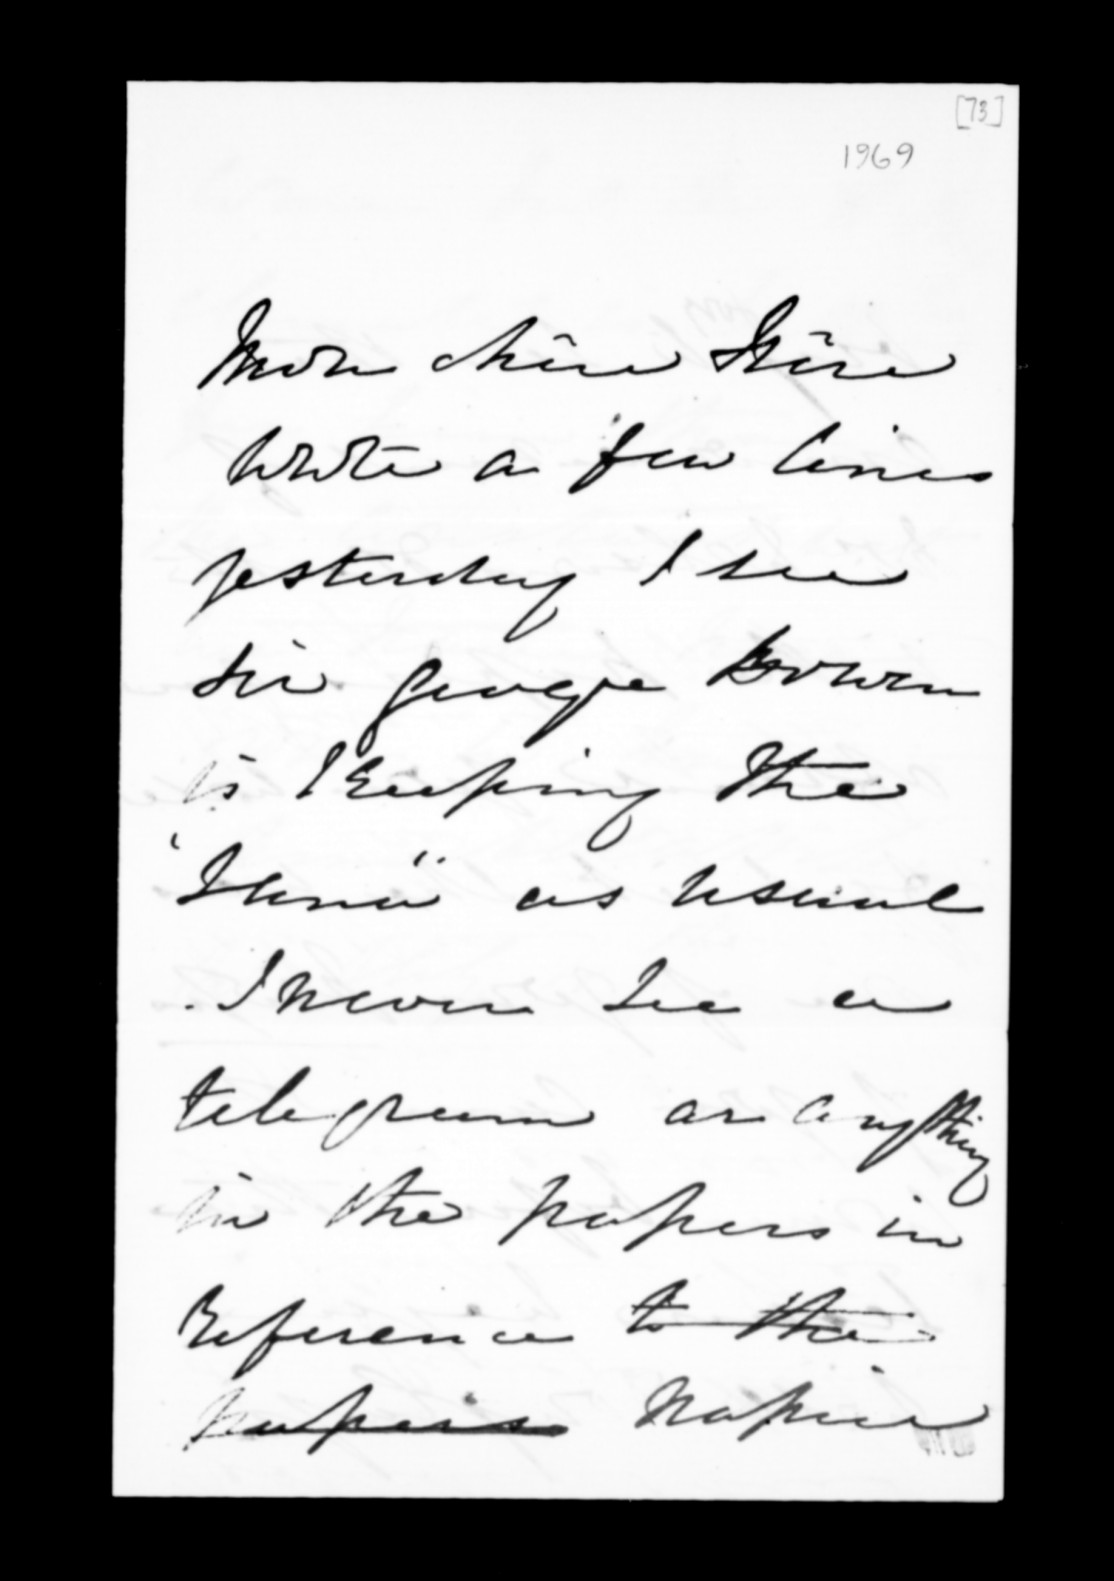 [73]
1969
Mon chère Frère
Wrote a few lines
yesterday I see
Sir George Bowen
is Keeping the
"Hana" as usual
. I never see a
telegram or anything
in the papers in
reference to the
papers Napier